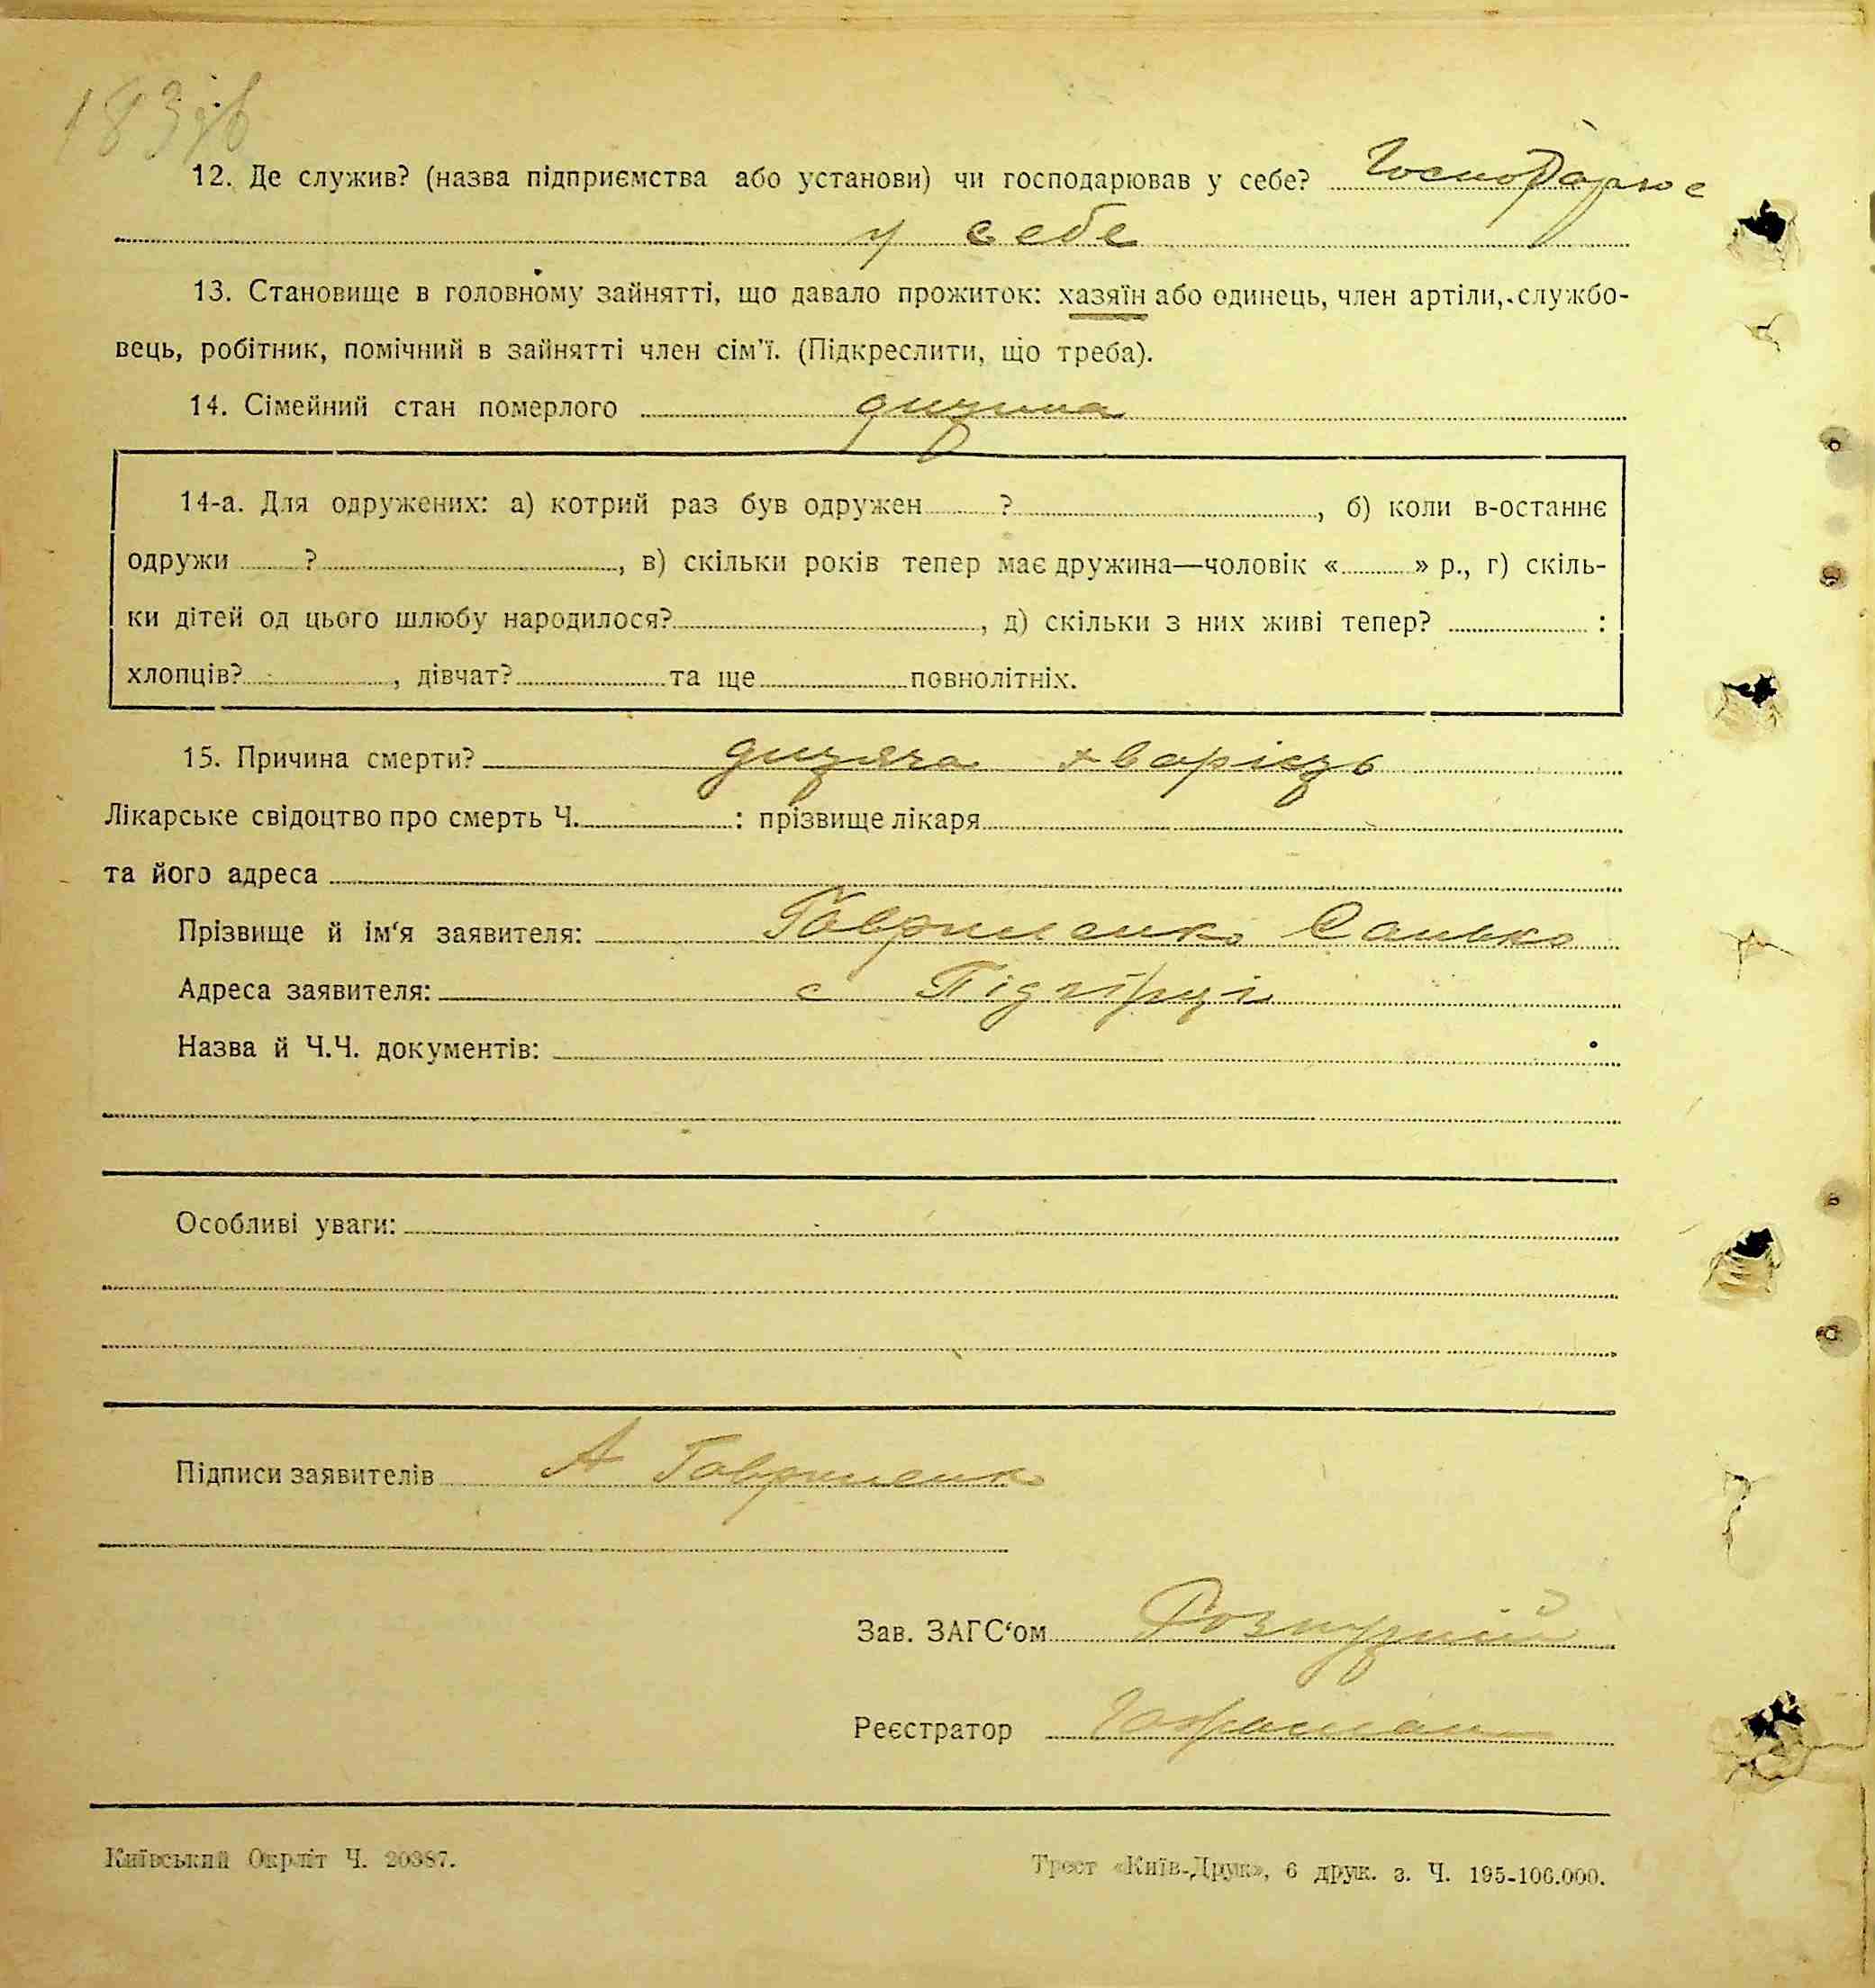 183зв
12. Де служив? (назва підприємства або установи) чи господарював у себе? Господарює
у себе
13. Становище в головному зайнятті, що давало прожиток: хазяїн або одинець, член артіли, службо-
вець, робітник, помічний в зайнятті член сім'ї. (Підкреслити, що треба).
14. Сімейний стан померлого дитина
14-а. Для одружених: а) котрий раз був одружен ? , б) коли в-останнє
одружи ? , в) скільки років тепер має дружина—чоловік « » р., г) скіль-
ки дітей од цього шлюбу народилося? , д) скільки з них живі тепер? :
хлопців? , дівчат? та ще повнолітніх.
15. Причина смерти? дитяча хворість
Лікарське свідоцтво про смерть Ч. : прізвище лікаря
та його адреса
Прізвище й ім'я заявителя: Гавриленко Санько
Адреса заявителя: с Підгірці
Назва й Ч.Ч. документів:
Особливі уваги:
Підписи заявителів А Гавриленко
Зав. ЗАГС'ом
Реєстратор
Київський Окрліт Ч. 20387.
Трест «Київ-Друк», 6 друк. з. Ч. 195-106.000.